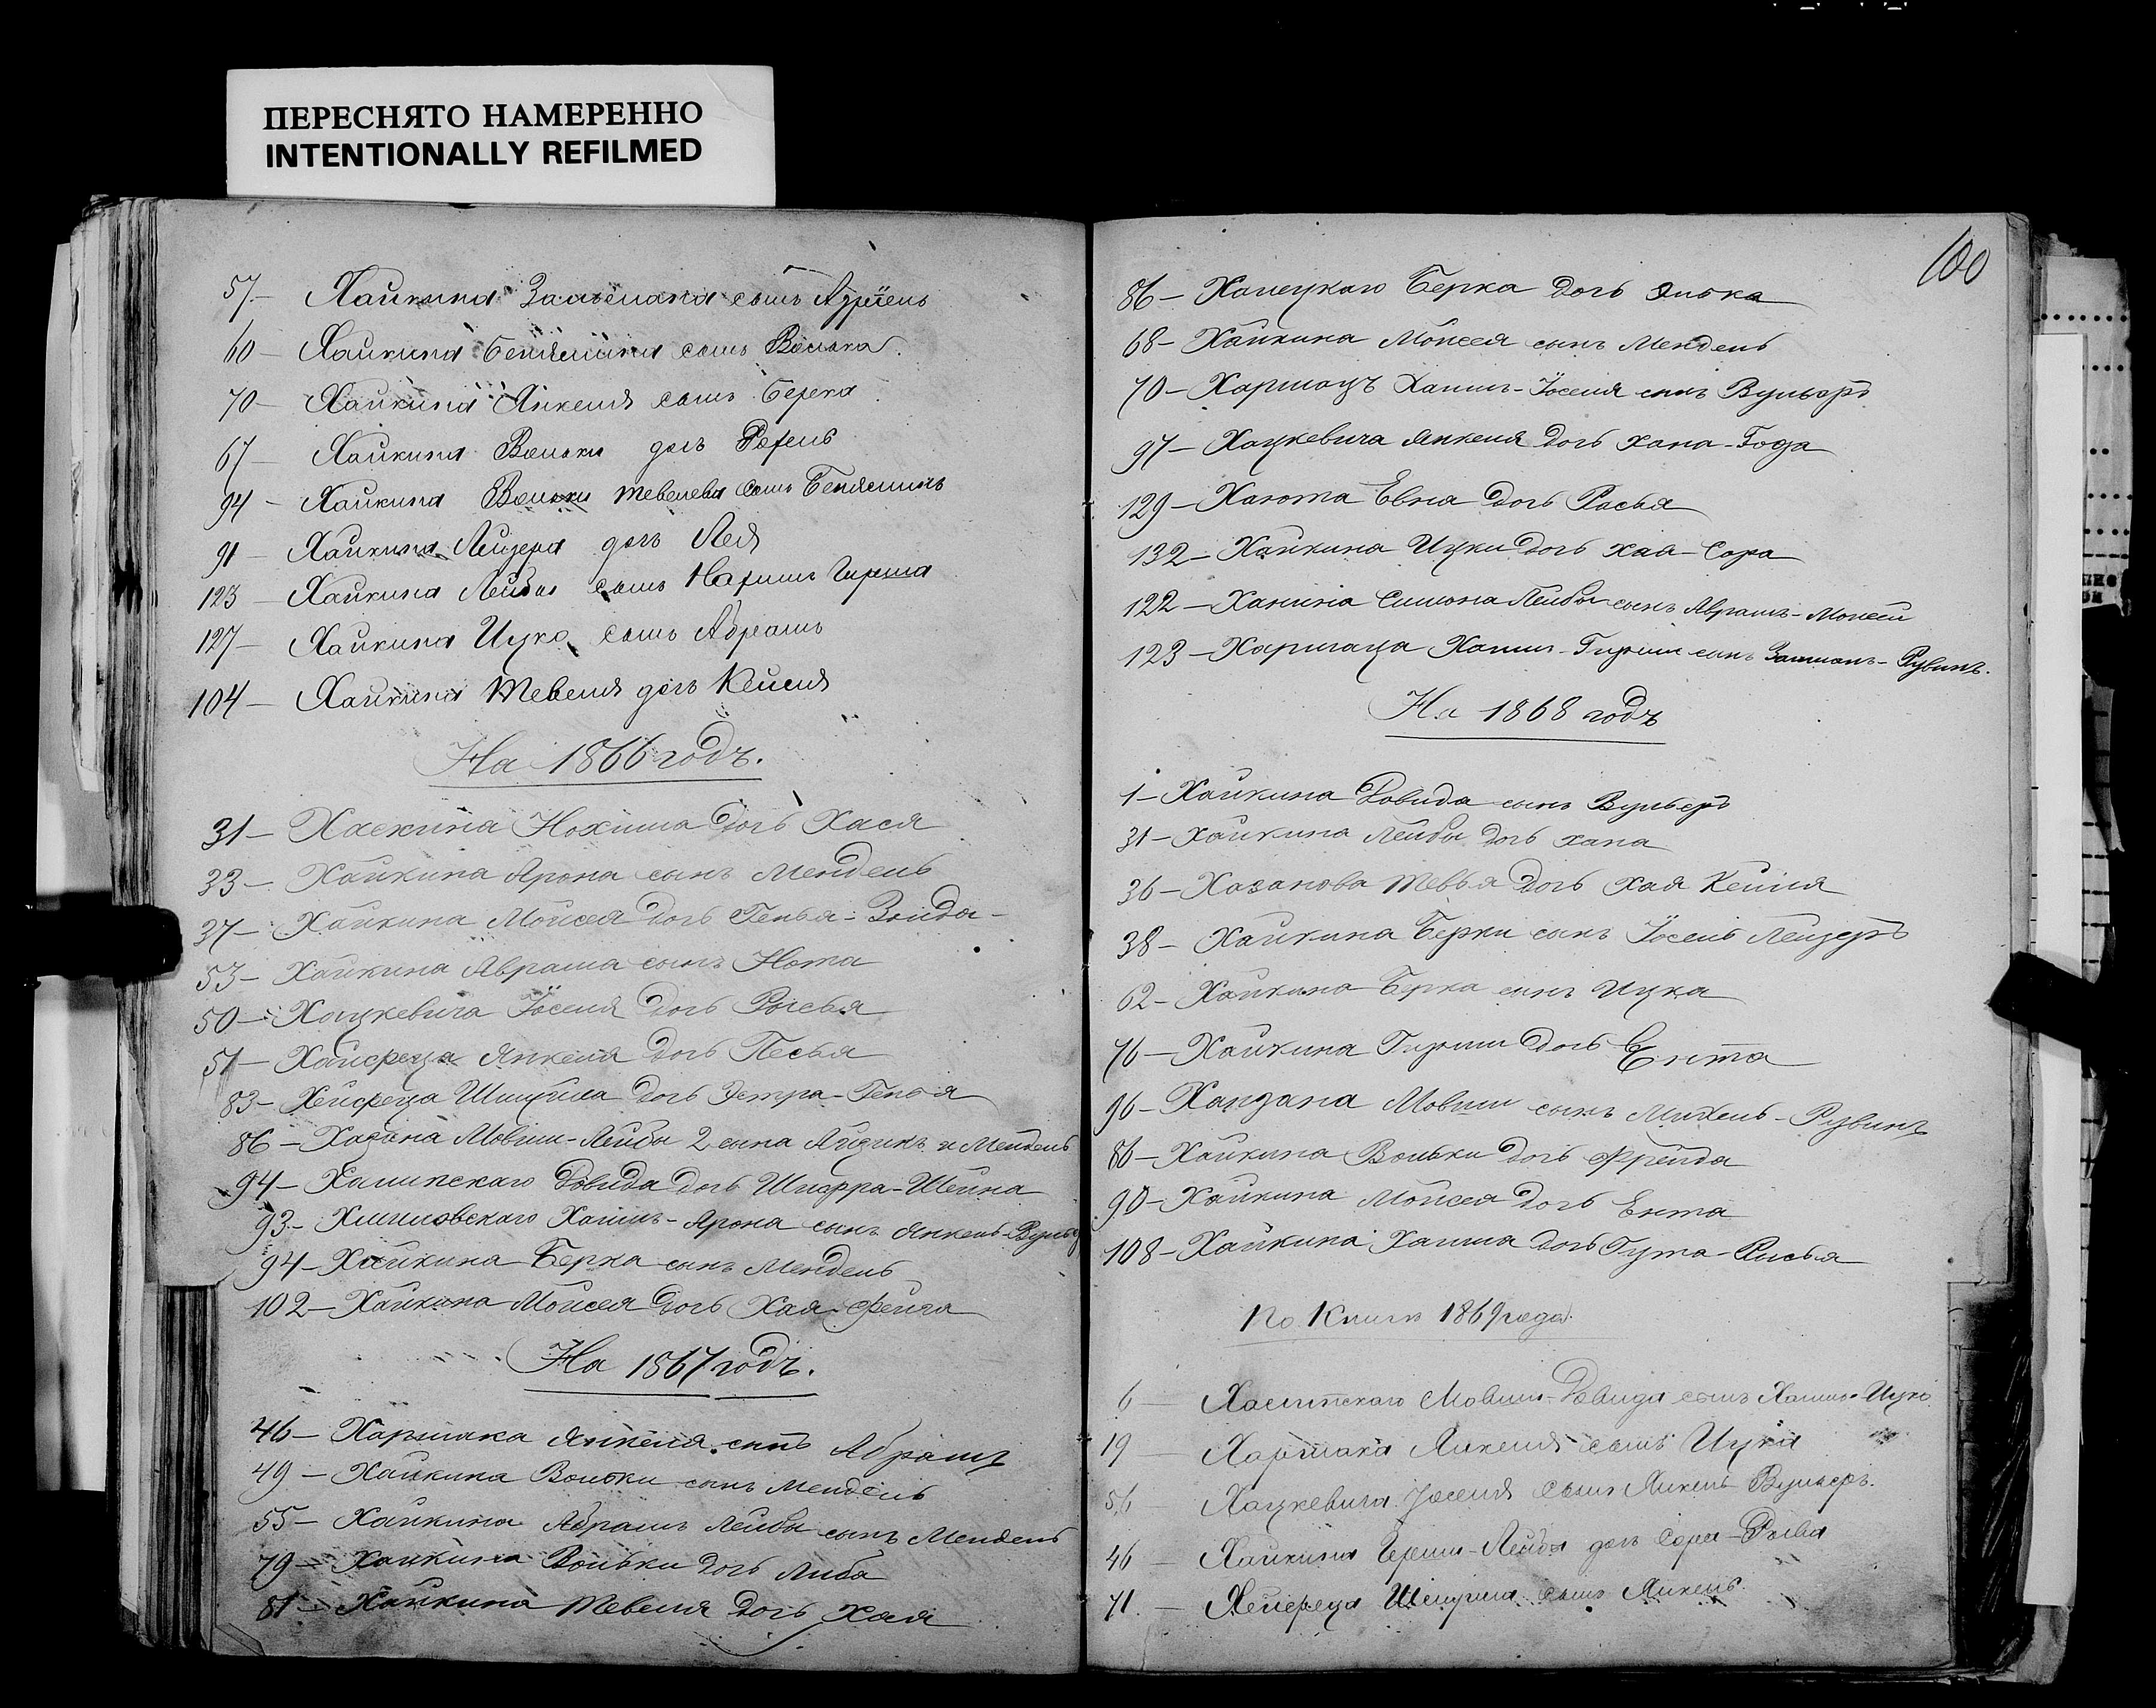 ПЕРЕСНЯТО НАМЕРЕННО
INTENTIONALLY REFILMED
57 – Хайкина Залмана сынъ Азріель
60 – Хайкина Беніямина сынъ Волька
70 – Хайкина Янкеля сынъ Берка
67 – Хайкина Вольки дочь
94 – Хайкина Вольки Тевелева сынъ Беніяминъ
91 – Хайкина Лейзера дочь Лея
123 – Хайкина Лейбы сынъ Гирша
127 – Хайкина Ицко сынъ Абрамъ
104 – Хайкина Тевеля дочь Кейля
На 1866 годъ.
31 – Хаскина Нохима дочь Хася
33 – Хайкина Арона сынъ Мендель
37 – Хайкина Мойсея дочь Генья-
53 – Хайкина Абрама сынъ Нота
50 – Хацкевича Іоселя дочь Рысья
51 – Янкеля дочь Песья
83 – Хейфеца дочь Эстра-Генья
86 – Хазана Мовши-Лейбы 2 сына Айзикъ и Мендель
94 – Довида дочь Шифра-Шейна
93 – Хаимъ-Арона сынъ Янкель-Вульф
94 – Хайкина Берка сынъ Мендель
102 – Хайкина Мойсея дочь Хая-Фейга
На 1867 годъ.
46 – Хармака Янкеля сынъ Абрамъ
49 – Хайкина Вольки сынъ Мендель
55 – Хайкина Абрамъ Лейбы сынъ Мендель
79 – Хайкина Вольки дочь Либа
81 – Хайкина Тевеля дочь Хая
100
86 – Берка дочь Элька
68 – Хайкина Мойсея сынъ Мендель
70 – Хаимъ-Іоселя сынъ Вульфъ
97 – Хацкевича Янкеля дочь Хана-Года
129 – Хаюта Евна дочь Рысья
132 – Хайкина Ицки дочь Хая-Сора
122 – Ханина Симона Лейбы сынъ Абрамъ-Мойсей
123 – Хаимъ-Гирши сынъ Залманъ-Рувинъ.
На 1868 годъ
1 – Хайкина Довида сынъ Вульфъ
31 – Хайкина Лейбы дочь Хана
36 – Хазанова Тевья дочь Хая Кейля
38 – Хайкина Берки сынъ Іосель Лейзеръ
62 – Хайкина Берка сынъ Ицка
76 – Хайкина Гирши дочь Ента
96 – Мовши сынъ Михель-Рувинъ
86 – Хайкина Вольки дочь Фрейда
90 – Хайкина Мойсея дочь Ента
108 – Хайкина Хаима дочь Гута-Рысья
По Книгѣ 1869 года.
6 – Мовши-Довида сынъ Хаимъ-Ицко
19 – Хармака Янкеля сынъ Ицка
56 – Хацкевича Іоселя сынъ Янкель Вульфъ.
46 – Хайкина Герши-Лейбы дочь Сора-
71. – Хейфеца сынъ Янкель